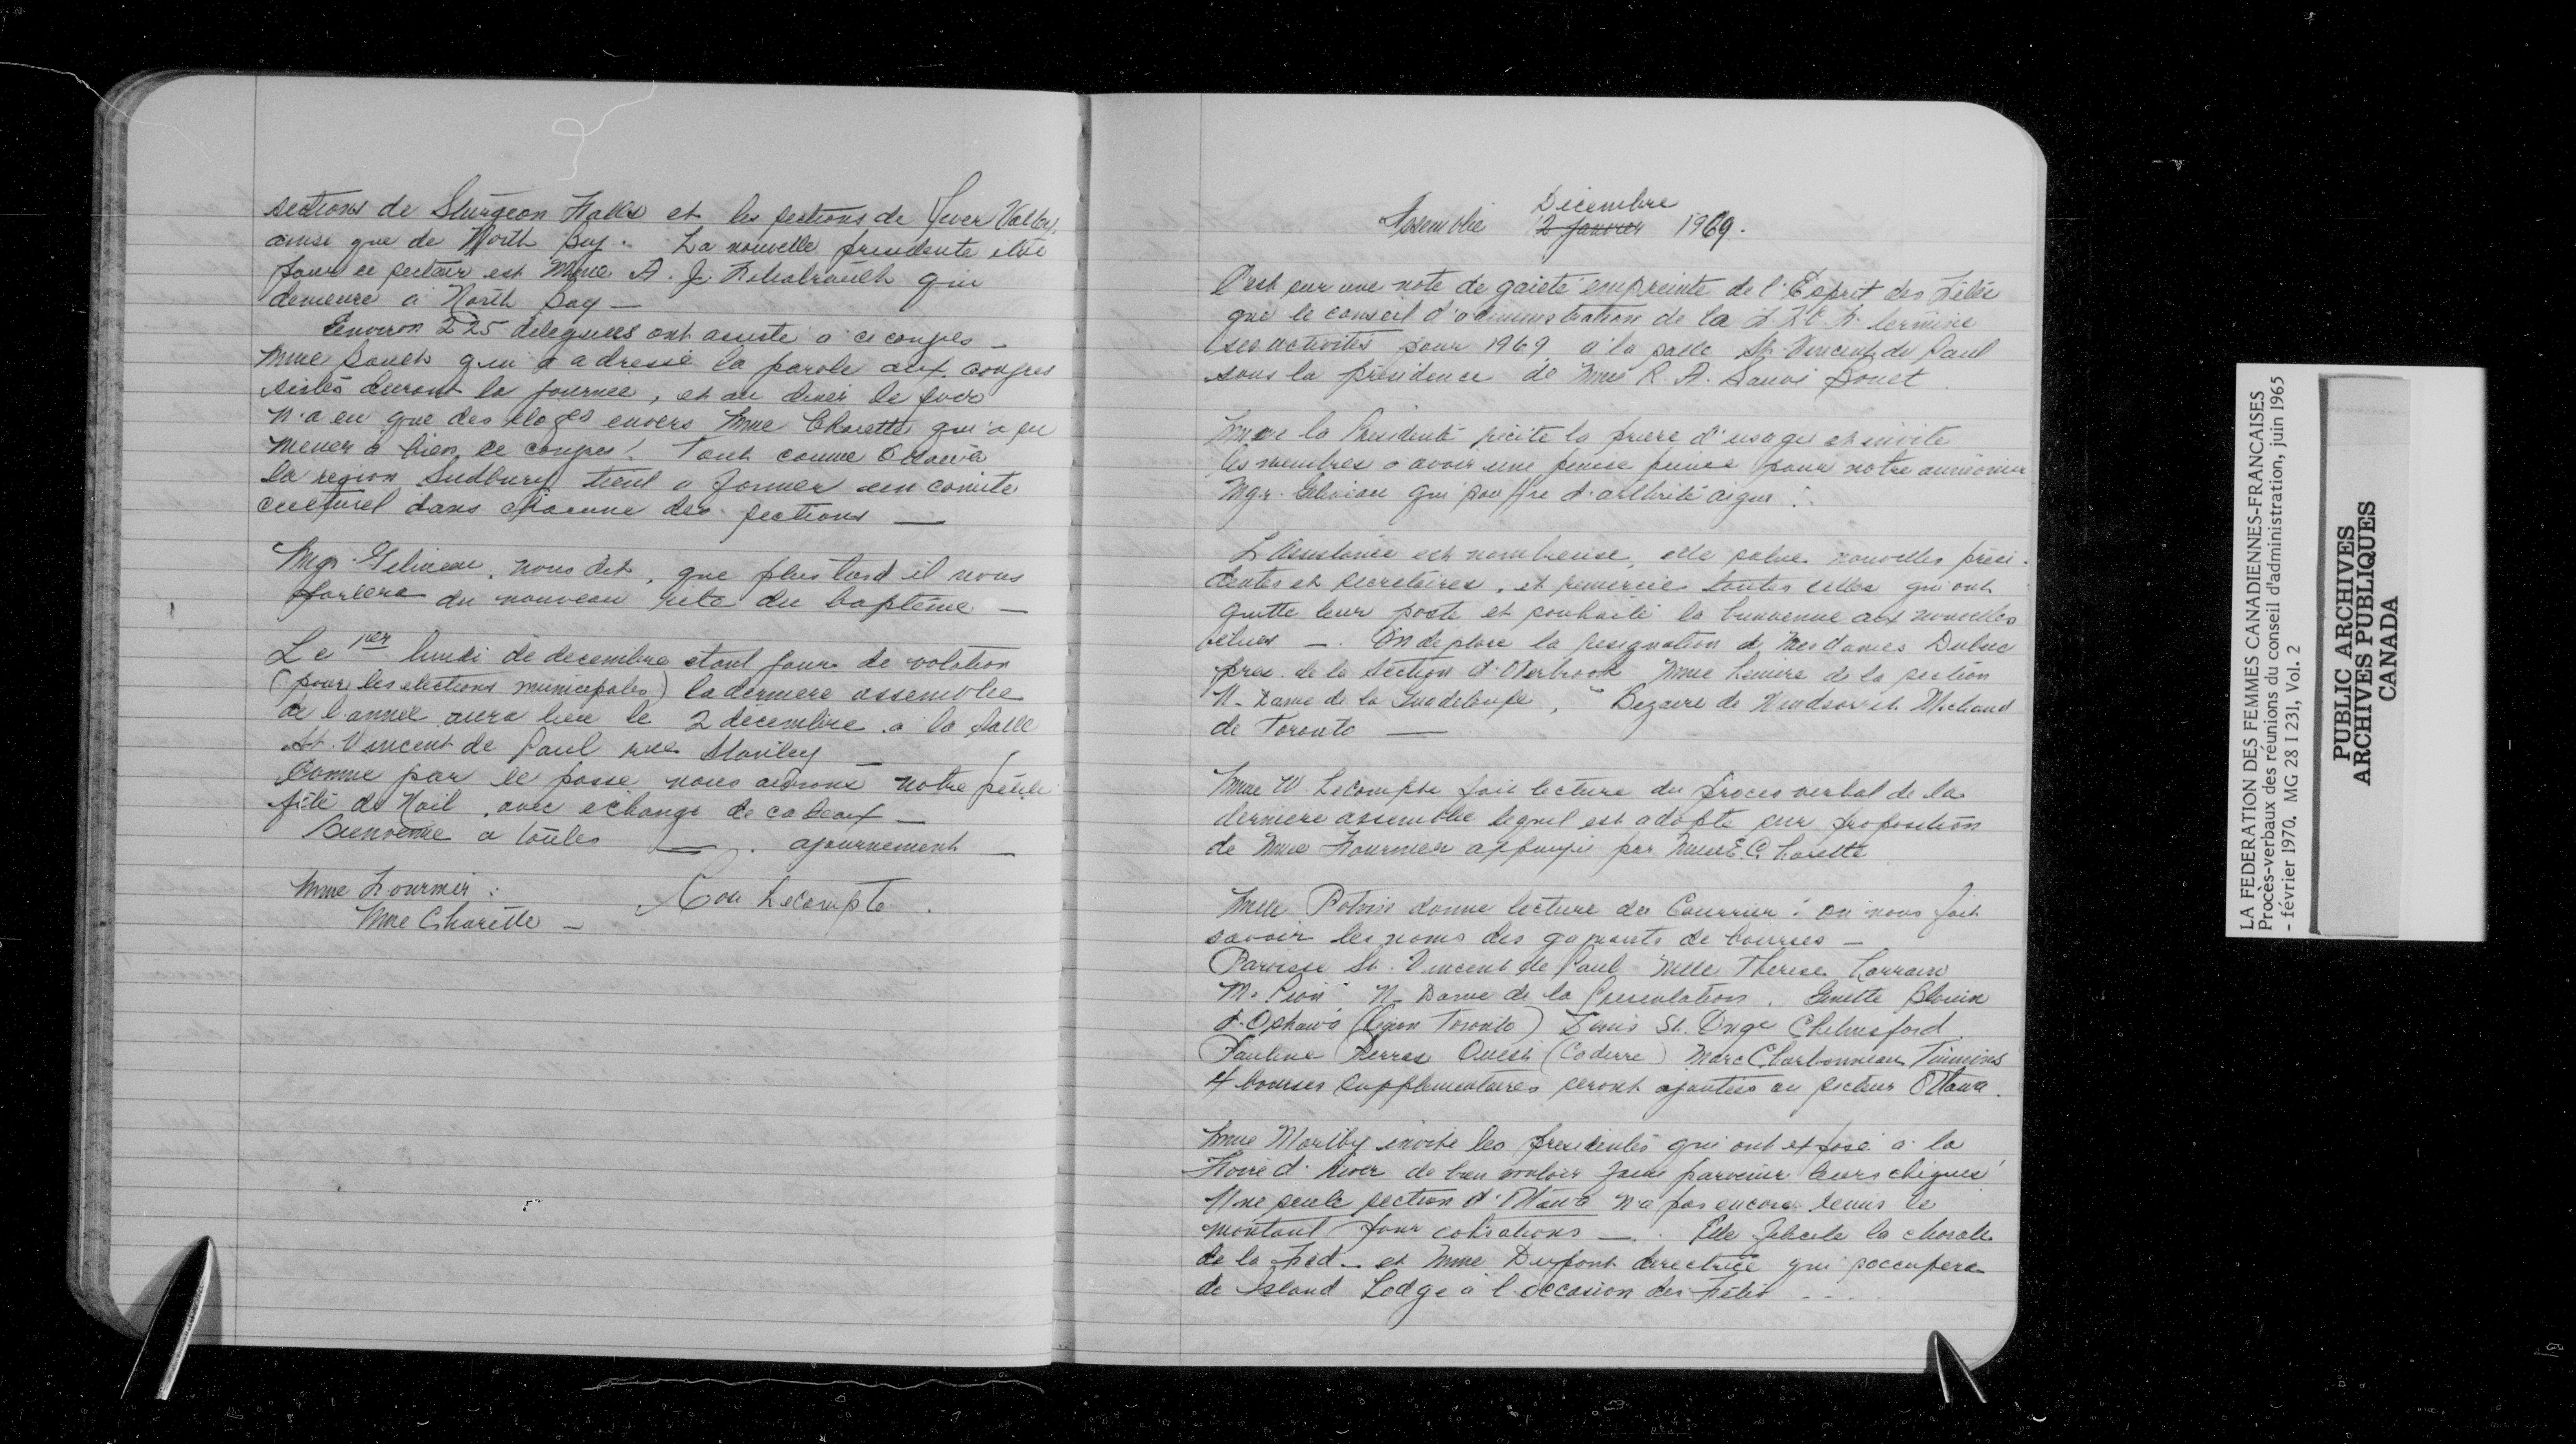 sections de Sturgeon Falls et les sections de Valley,
ainsi que de North Bay. La nouvelle présidente élue
pour ce secteur est Mme A. J. qui
demeure à North Bay —
Environ 225 déleguées ont assisté a ce congrès —
Mme qui a adressé la parole aux congres
sistes durant la journee, et au diner le soir
n'a eu que des eloges envers Mme Charette qui a su
mener à bien ce congres! Tout comme Ottawa
la region Sudbury tient a former un comite
culturel dans chacune des sections —
Mgr. Gelineau, nous dit, que plus tard il nous
parlera du nouveau rite du baptême —
Le 1er lundi de decembre etant jour de votation
(pour les elections municipales) la derniere assemblee
de l'annee aura lieu le 2 decembre a la salle
St. Vincent de Paul rue Stanley —
Comme par le passé nous aurons notre petite
fête de Noël, avec echange de cadeaux —
Bienvenue a toutes — . ajournement —
Mme Fournier :
Lecompte .
Mme Charette —
Décembre
Assemblée 12 Janvier 1969.
C'est sur une note de gaieté empreinte de l'Esprit des Fêtes
que le conseil d'administration de la F. F. C. F. termine
ses activités pour 1969 à la salle St. Vincent de Paul
sous la présidence de Mme R. A. Sauvé Bouet.
Mme la Présidente récite la prière d'usage et invite
les membres a avoir une pensée pour notre aumônier
Mgr. Gelineau qui souffre d'arthrite aigue .
L'Assistance est nombreuse, elle salue nouvelles prési-
dentes et secretaires, et remercie toutes celles qui ont
quitté leur poste et souhaite la bienvenue aux nouvelles
élues — . On deplore la resignation de Mesdames Dubuc
pres. de la Section d'Overbrook Mme Lemire de la section
N. Dame de la Guadeloupe, " Bezaire de Windsor et Michaud
de Toronto —
Mme W. Lecompte fait lecture du proces verbal de la
derniere assemblee lequel est adopté sur proposition
de Mme Fournier appuyée par Mme E. Charette
Mlle Potvin donne lecture du Courrier : on nous fait
savoir les noms des gagnants de bourses —
Paroisse St. Vincent de Paul Melle Therese Lorrain
M. Pion N. Dame de la Presentation, Ginette Blouin
d'Oshawa (Region Toronto) Denis St. Onge Chelmsford.
Pauline Ouest (Coderre) Marc Charbonneau Timmins
4 bourses supplementaires seront ajoutées au secteur Ottawa.
Mme invite les presidentes qui ont exposé a la
Foire d'hiver de bien vouloir faire parvenir leurs cheques
Une seule section d'Ottawa n'a pas encore remis le
montant pour cotisations — . Elle felicite la chorale
de la Féd. et Mme Dupont directrice qui s'occupera
de Island Lodge à l'occasion des Fêtes ...
LA FEDERATION DES FEMMES CANADIENNES-FRANCAISES
Procès-verbaux des réunions du conseil d'administration, juin 1965
- février 1970. MG 28 I 231, Vol. 2
PUBLIC ARCHIVES
ARCHIVES PUBLIQUES
CANADA